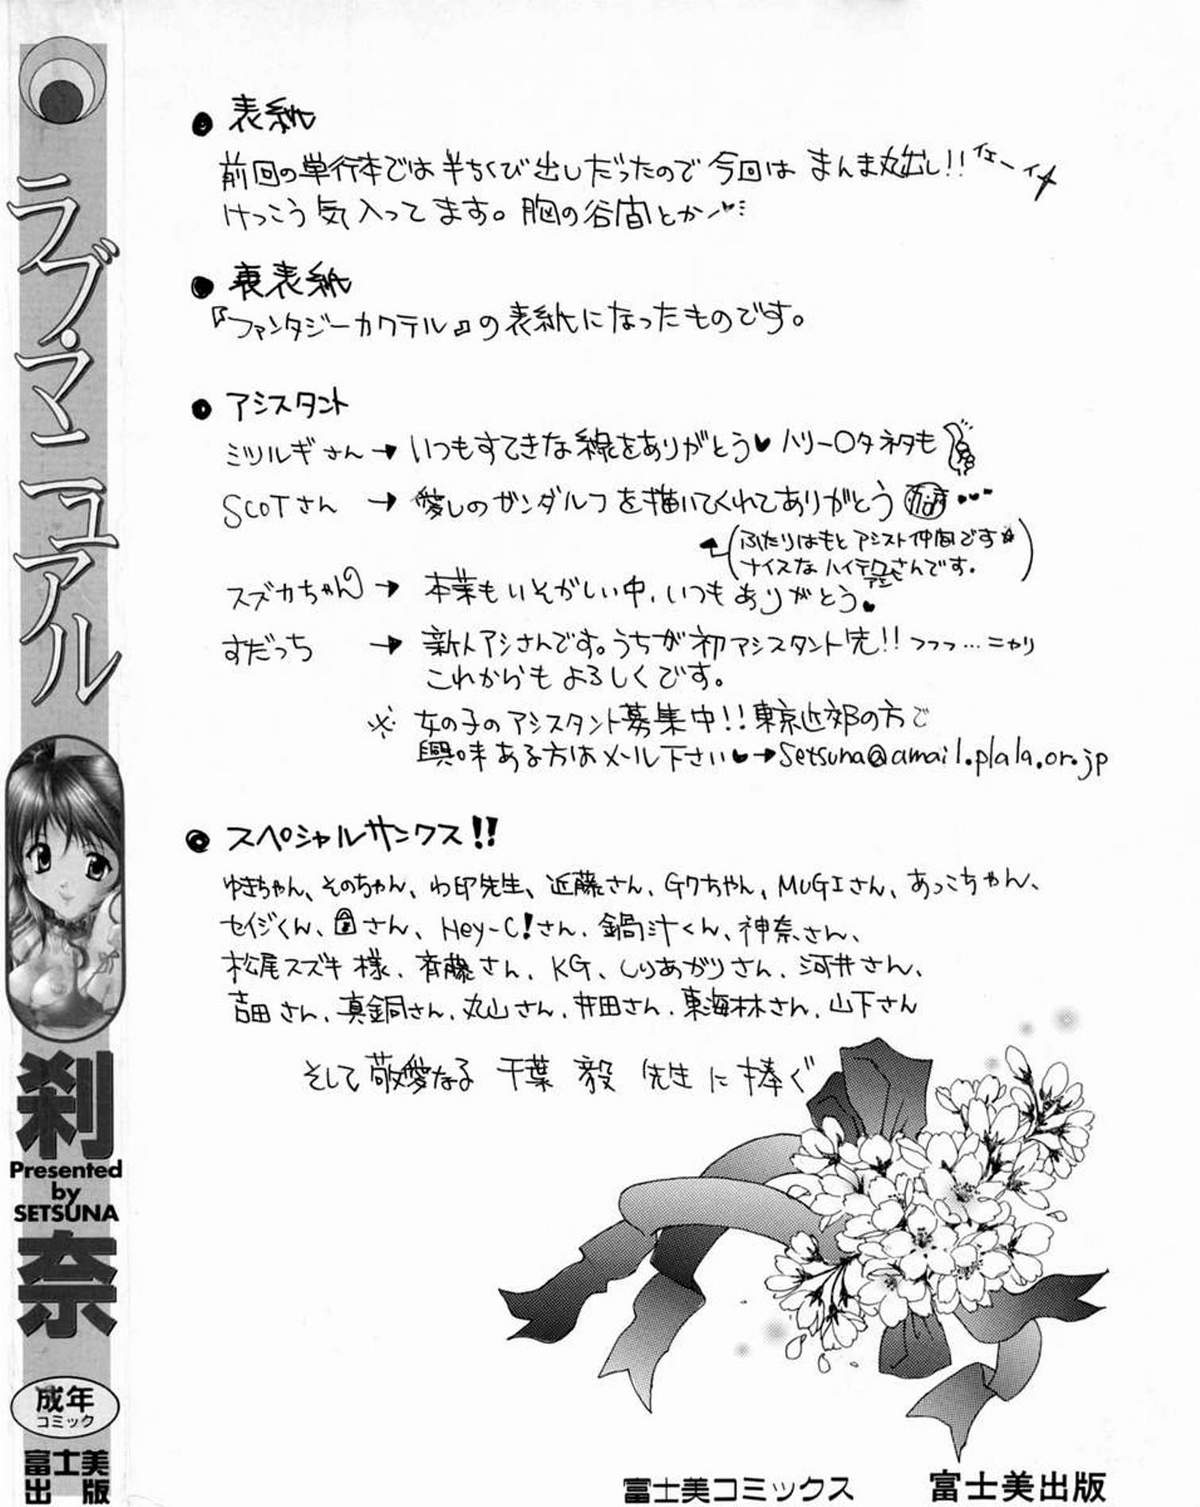 ラブ・マニュアル
刹奈
Presented
by
SETSUNA
成年
コミック
富士美
出版
表紙
前回の単行本では半ちくび出しだったので今回は まんま丸出し!! イェーイ
けっこう気入ってます。胸の谷間とか
裏表紙
『ファンタジーカクテル』の表紙になったものです。
アシスタント
ミツルギさん→いつもすてきな線をありがとう♥ハリー〇タネタも
SCOTさん → 愛しのガンダルフを描いてくれてありがとう
(ふたりはもとアシスト仲間です☆
ナイスなハイテクアシさんです。)
スズカちゃん → 本業もいそがしい中、いつもありがとう♥
すだっち → 新人アシさんです。うちが初アシスタント先!! フフフ…ニヤリ
これからもよろしくです。
※ 女の子のアシスタント募集中!!東京近郊の方で
興味ある方はメール下さい♥→setsuna@amail.plala.or.jp
スペシャルサンクス!!
ゆきちゃん、そのちゃん、わ印先生、近藤さん、Gクちゃん、MUGIさん、あっこちゃん、
セイジくん、さん、Hey-C!さん、鍋汁くん、神奈さん、
松尾スズキ様、斉藤さん、KG、しりあがりさん、河井さん、
吉田さん、真鍋さん、丸山さん、井田さん、東海林さん、山下さん
そして敬愛なる 千葉 毅 先生に捧ぐ
富士美コミックス 富士美出版